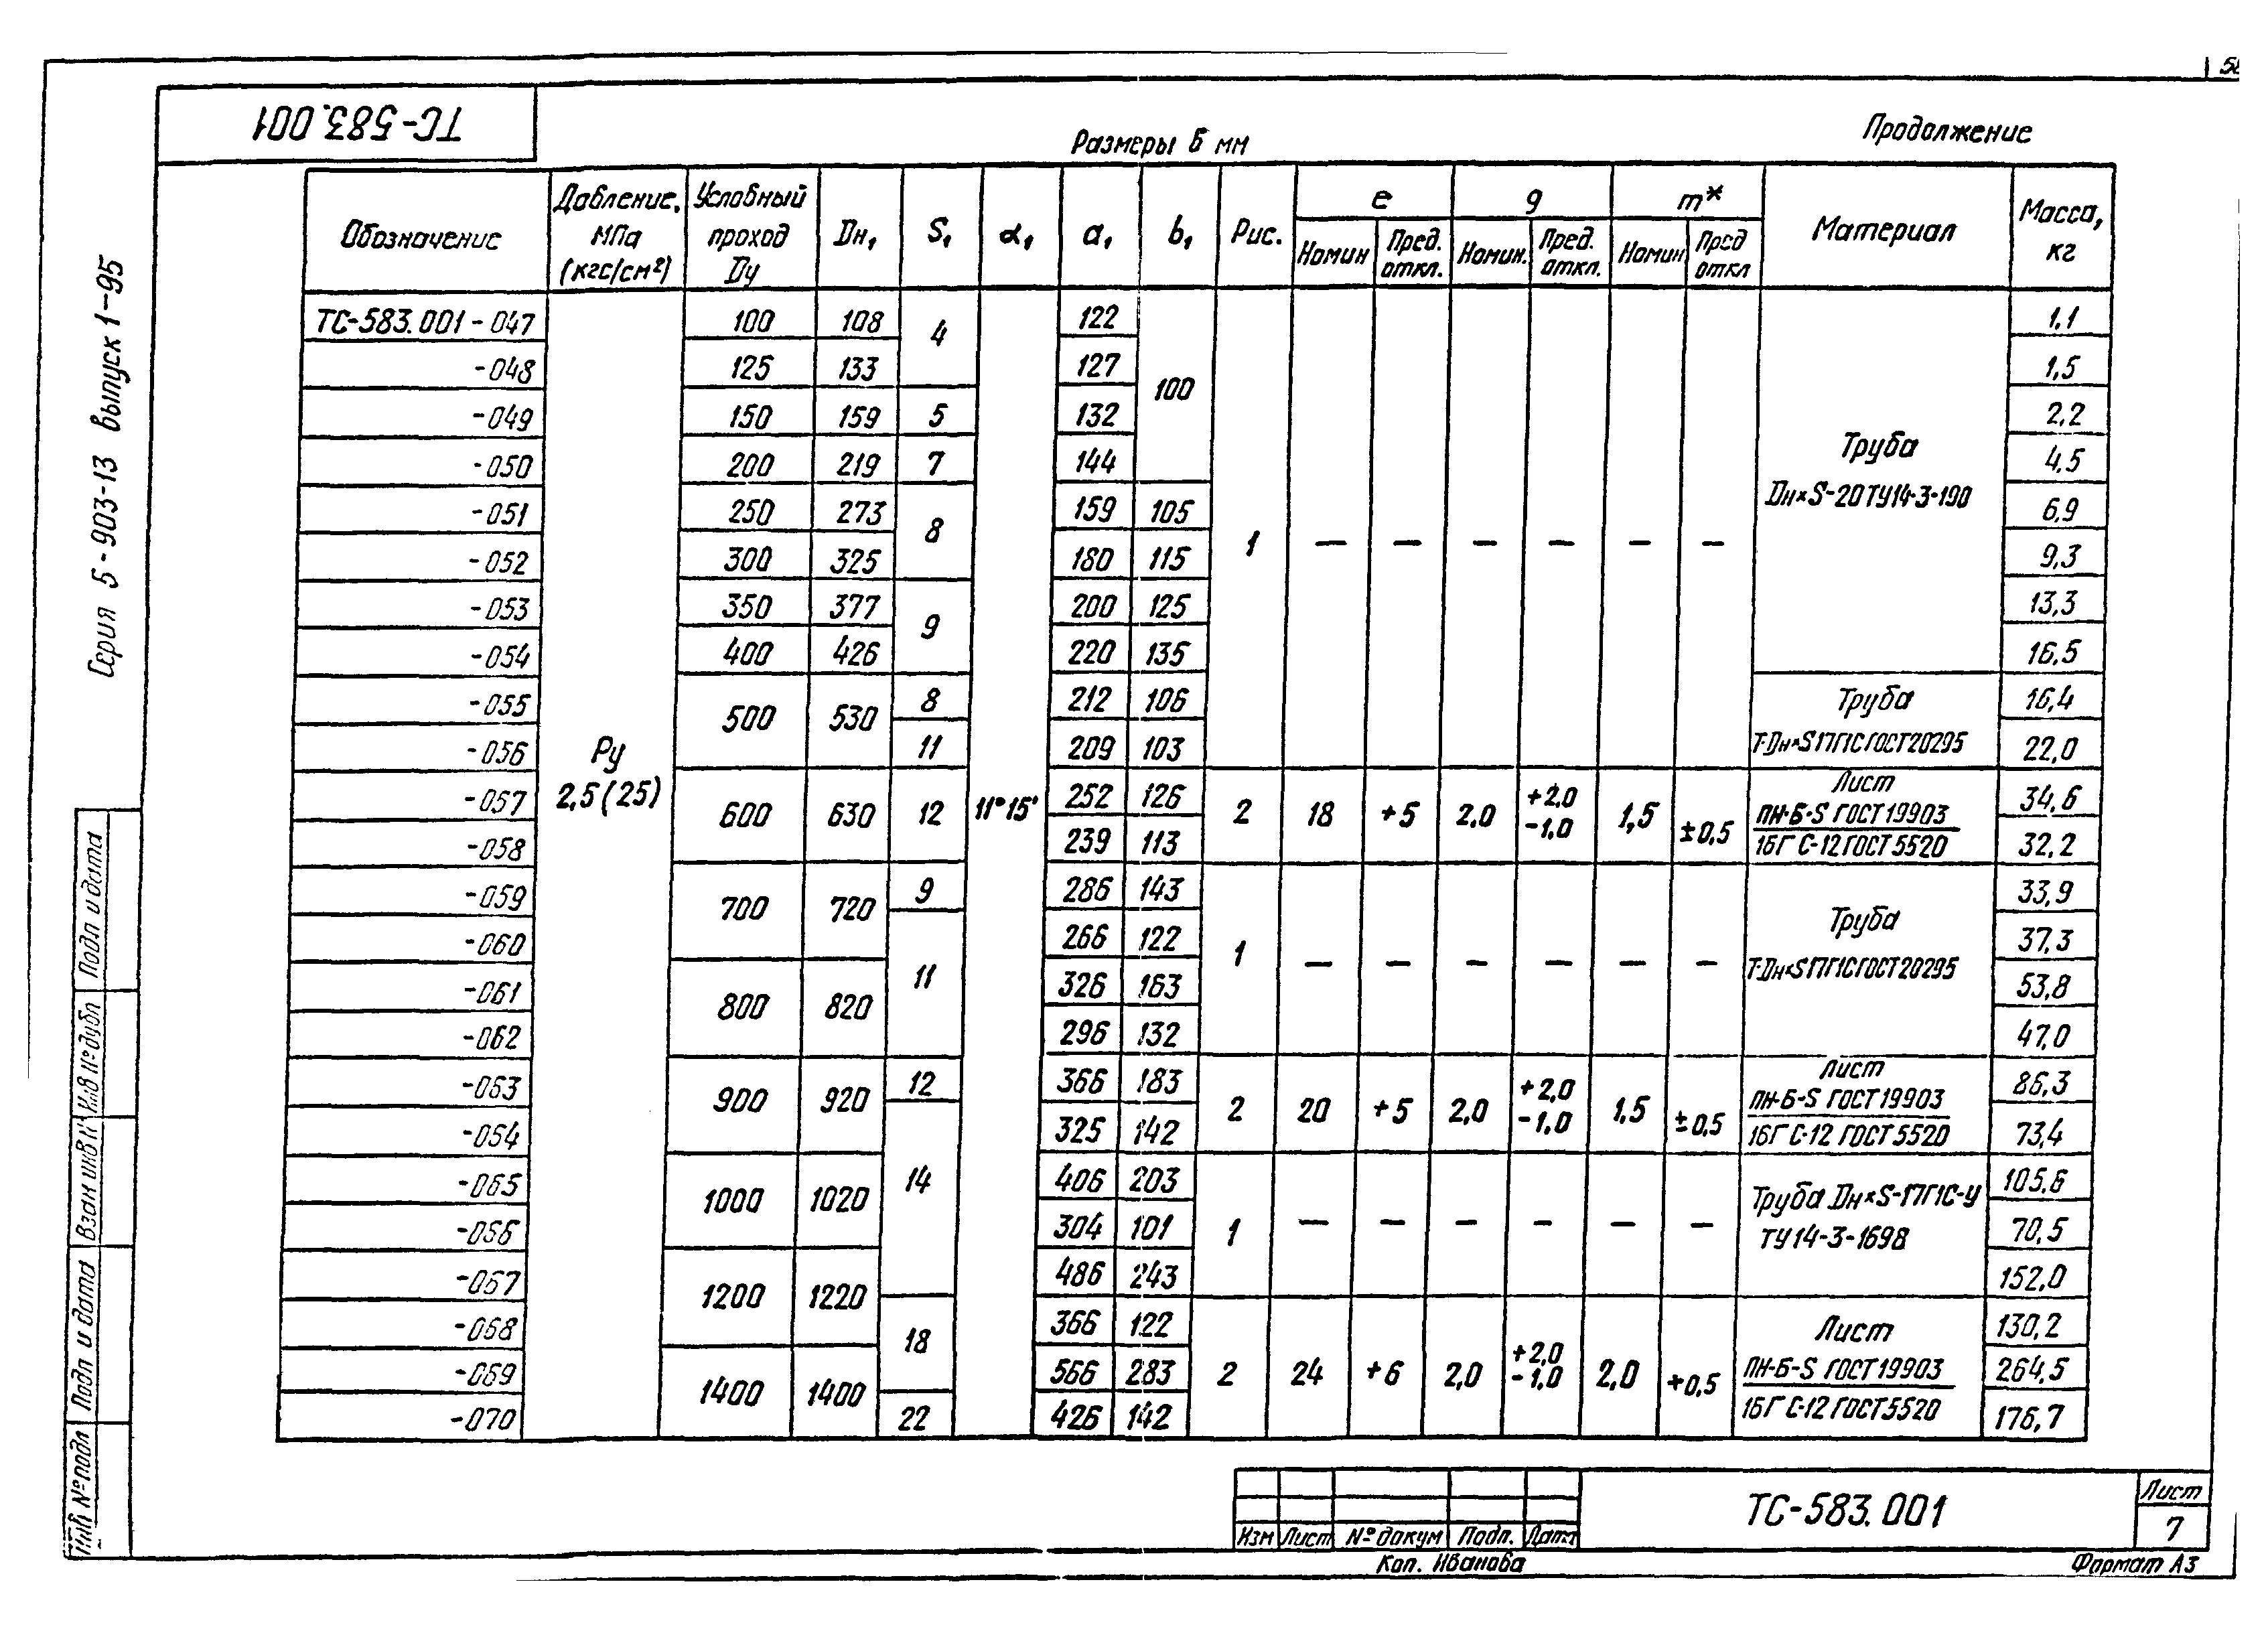 ТС-583.001
Размеры в мм
Продолжение
Серия 5-903-13 выпуск 1-95
Обозначение | Давление, МПа (кгс/см²) | Условный проход Dу | Dн₁ | S₁ | α₁ | a₁ | b₁ | Рис. | e Номин | e Пред. откл. | g Номин. | g Пред. откл. | m* Номин | m* Пред откл | Материал | Масса, кг
ТС-583.001-047 | Ру 2,5(25) | 100 | 108 | 4 | 11°15' | 122 | 100 | 1 | — | — | — | — | — | — | Труба Dн×S-20 ТУ14-3-190 | 1,1
-048 | 125 | 133 | 127 | 1,5
-049 | 150 | 159 | 5 | 132 | 2,2
-050 | 200 | 219 | 7 | 144 | 4,5
-051 | 250 | 273 | 8 | 159 | 105 | 6,9
-052 | 300 | 325 | 180 | 115 | 9,3
-053 | 350 | 377 | 9 | 200 | 125 | 13,3
-054 | 400 | 426 | 220 | 135 | 16,5
-055 | 500 | 530 | 8 | 212 | 106 | Труба Т-Dн×S 17Г1С ГОСТ20295 | 16,4
-056 | 11 | 209 | 103 | 22,0
-057 | 600 | 630 | 12 | 252 | 126 | 2 | 18 | +5 | 2,0 | +2,0 -1,0 | 1,5 | ±0,5 | Лист ПН-Б-S ГОСТ19903 16ГС-12 ГОСТ5520 | 34,6
-058 | 239 | 113 | 32,2
-059 | 700 | 720 | 9 | 286 | 143 | 1 | — | — | — | — | — | — | Труба Т-Dн×S 17Г1С ГОСТ20295 | 33,9
-060 | 11 | 266 | 122 | 37,3
-061 | 800 | 820 | 326 | 163 | 53,8
-062 | 296 | 132 | 47,0
-063 | 900 | 920 | 12 | 366 | 183 | 2 | 20 | +5 | 2,0 | +2,0 -1,0 | 1,5 | ±0,5 | Лист ПН-Б-S ГОСТ19903 16ГС-12 ГОСТ5520 | 86,3
-064 | 14 | 325 | 142 | 73,4
-065 | 1000 | 1020 | 406 | 203 | 1 | — | — | — | — | — | — | Труба Dн×S-17Г1С-У ТУ14-3-1698 | 105,6
-066 | 304 | 101 | 70,5
-067 | 1200 | 1220 | 486 | 243 | 152,0
-068 | 18 | 366 | 122 | 2 | 24 | +6 | 2,0 | +2,0 -1,0 | 2,0 | +0,5 | Лист ПН-Б-S ГОСТ19903 16ГС-12 ГОСТ5520 | 130,2
-069 | 1400 | 1400 | 566 | 283 | 264,5
-070 | 22 | 426 | 142 | 176,7
Подп и дата
Инв № дубл
Взам инв №
Подп и дата
Инв № подл
Изм Лист № докум Подп. Дата
ТС-583.001
Лист
7
Коп. Иванова
Формат А3